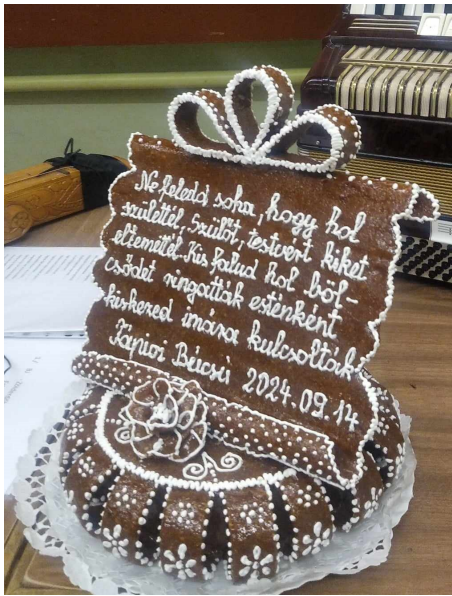 Ne feledd soha, hogy hol
születtél, Szülőt, testvért kiket
eltemettél. Kis falud hol böl-
csődet ringatták esténként
kiskezed imára kulcsolták.
Tápiói Búcsú 2024.09.14